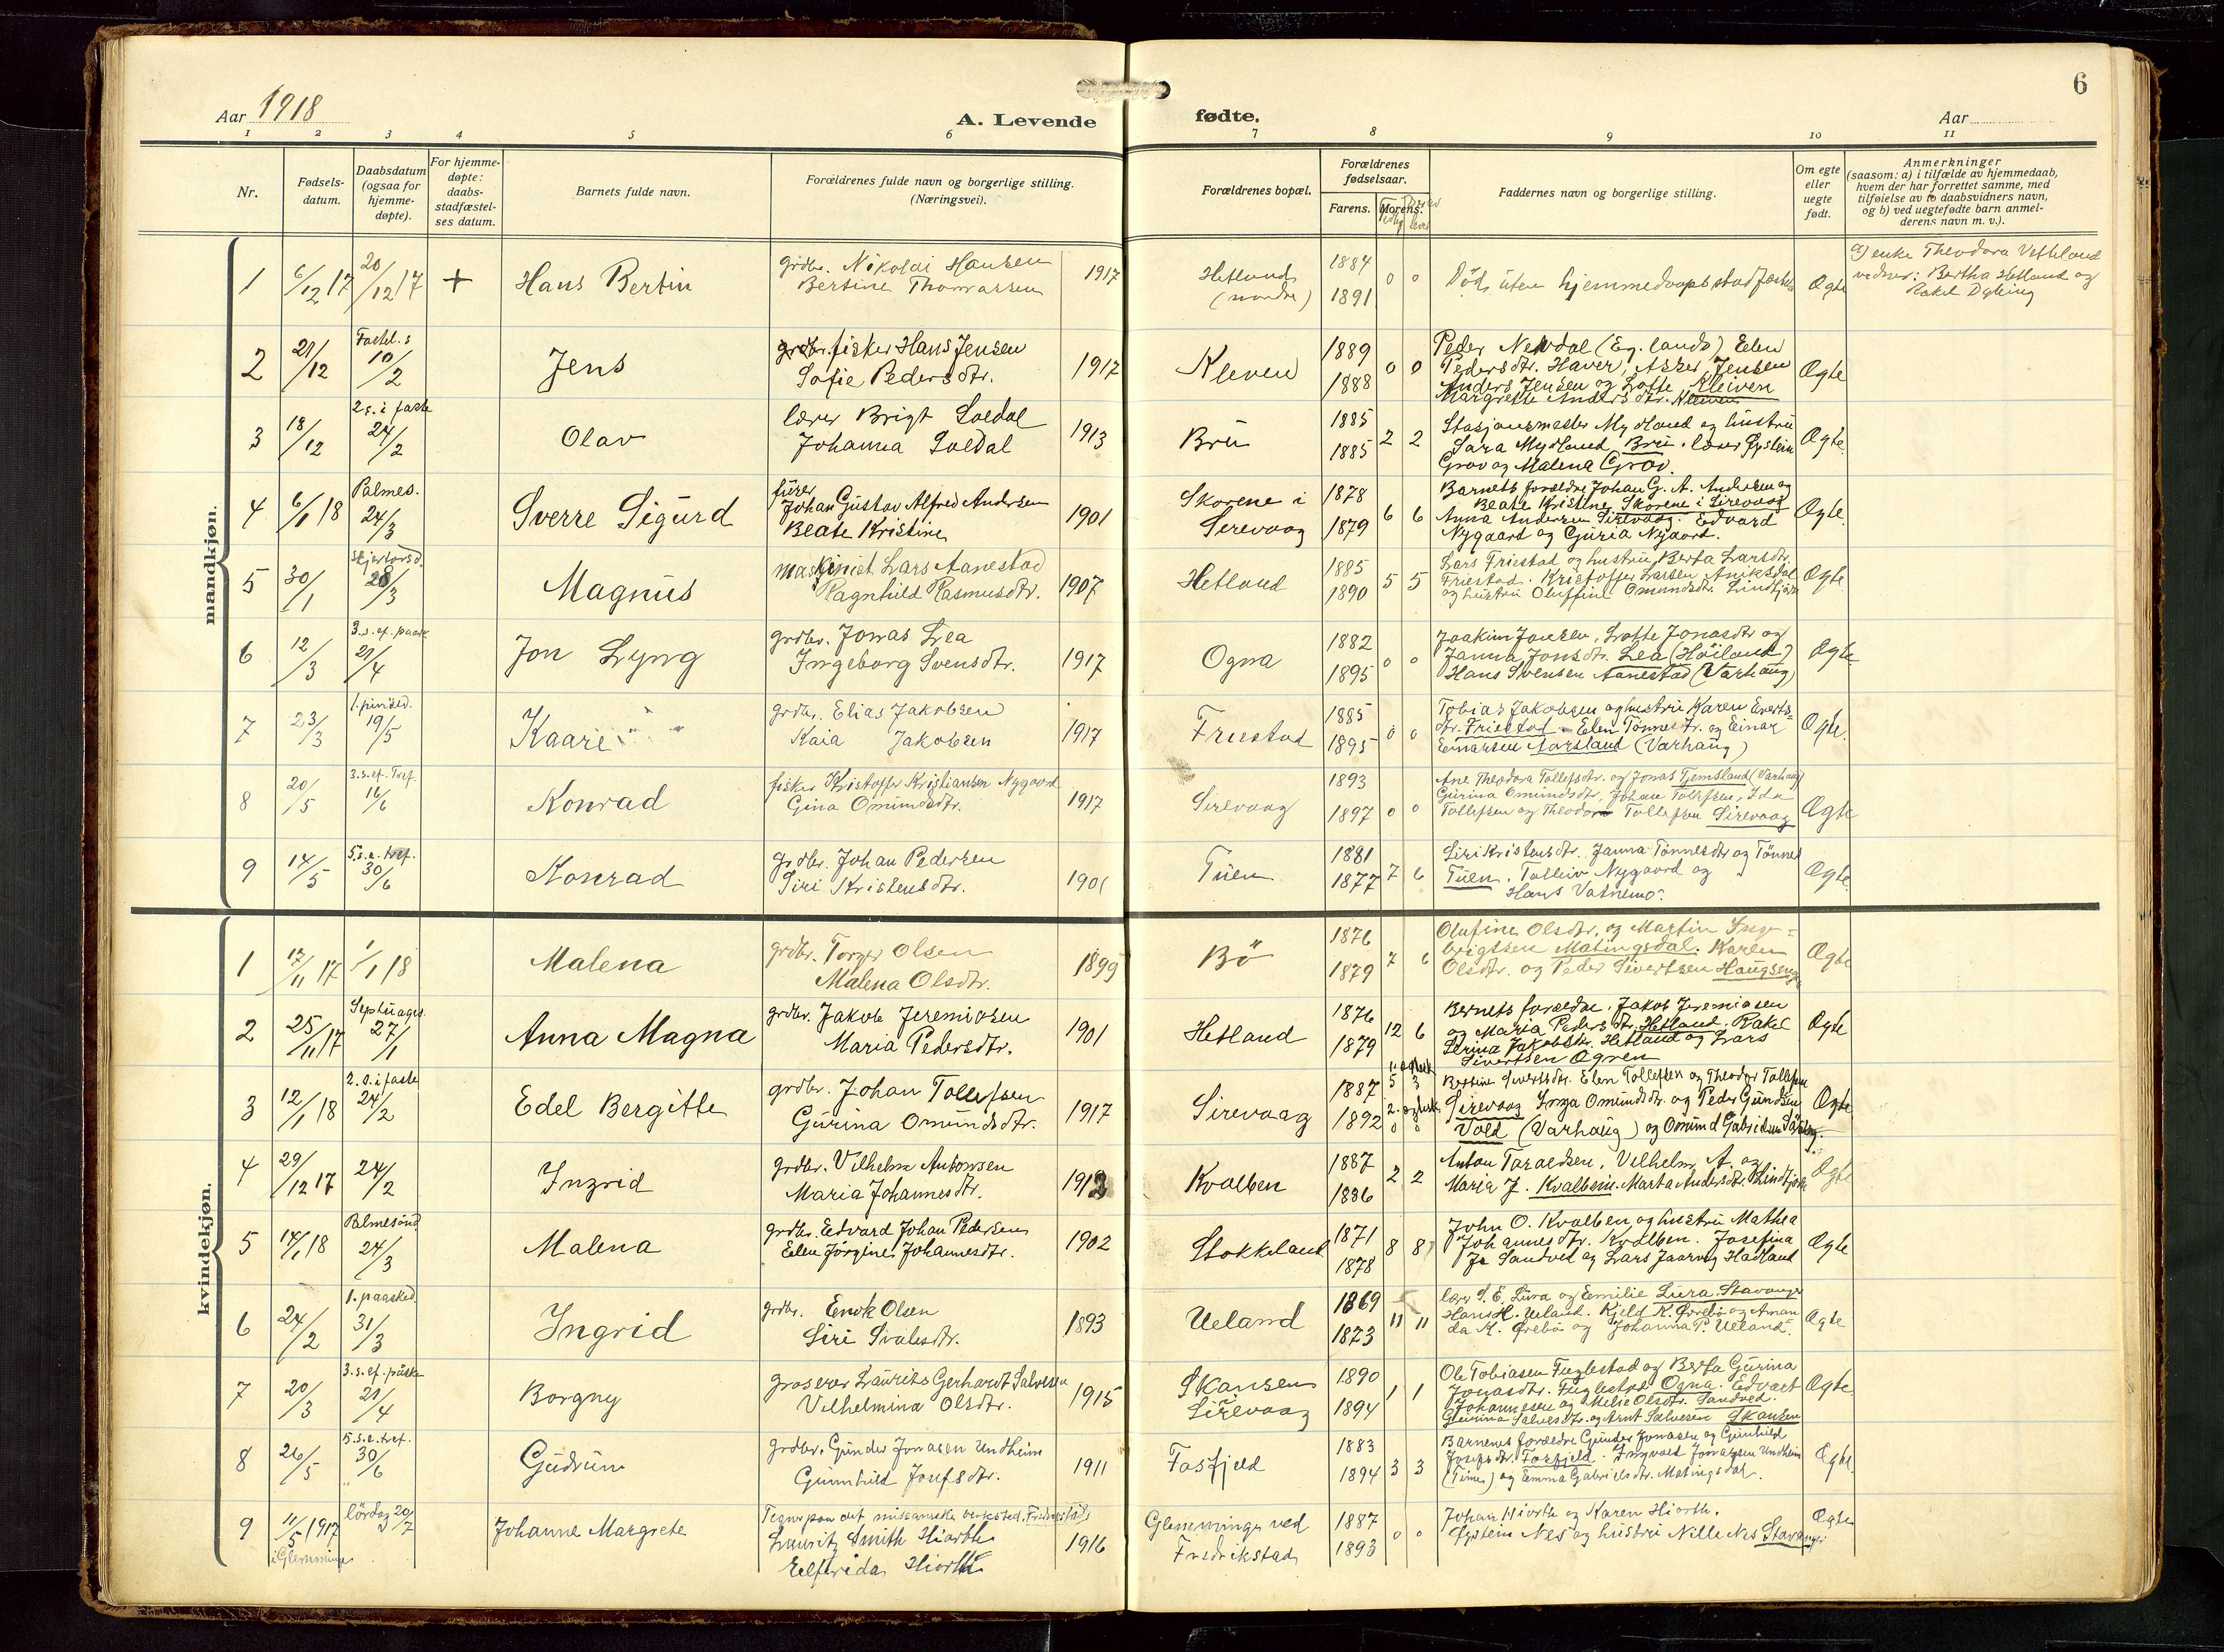 6
Aar 1918
A. Levende
fødte.
Aar
1 2 3 4 5 6 7 8 9 10 11
Nr.
Fødsels-
datum.
Daabsdatum
(ogsaa for
hjemme-
døpte).
For hjemme-
døpte:
daabs-
stadfæstel-
ses datum.
Barnets fulde navn.
Forældrenes fulde navn og borgerlige stilling.
(Næringsvei).
Forældrenes bopæl.
Forældrenes
fødselsaar.
Farens. Morens.
Faddernes navn og borgerlige stilling.
Om egte
eller
uegte
født.
Anmerkninger
(saasom: a) i tilfælde av hjemmedaab,
hvem der har forrettet samme, med
tilføielse av to daabsvidners navn,
og b) ved uegtefødte barn anmel-
derens navn m. v.).
mandkjøn.
1 6/12 17 20/12 17 + Hans Bertin
grdbr. Nikolai Hansen
Bertine Thomassen
1917
Hetland
(nordre)
1884
1891
0 0
Død uten hjemmedaapsstadfæstelse
Ægte
Enke Theodora Vetteland
vidner: Bertha Hetland og
Rakel Dyking
2 21/12 Fastel.s 10/2 Jens
grdbr. fisker Hans Jensen
Sofie Pedersdtr.
1917
Kleven
1889
1888
0 0
Peder Nevdal (Eg. lands) Elen
Pedersdtr. Haver, Asser Jensen
Anders Jensen og Lotte Kleiven
Margrethe Andersdtr. Kleiven
Ægte
3 18/12 2.s. i faste 24/2 Olav
lærer Brigt Soedal
Johanna Soedal
1913
Bru
1885
1885
2 2
Stasjonsmester Mydland og hustru
Sara Mydland Bru. lærer Øystein
Grov og Malena Grov.
Ægte
4 6/1 18 Palmes. 24/3 Sverre Sigurd
fürer
Johan Gustav Alfred Andersen
Beate Kristine
1901
Skorene i
Sirevaag
1878
1879
6 6
Barnets forældre Johan G. A. Andersen og
Beate Kristine Skorene i Sirevaag
Anna Andersen Sirevaag. Edvard
Nygaard og Guria Nygaard.
Ægte
5 30/1 Skjærtorsd. 28/3 Magnus
maskinist Lars Aanestad
Ragnhild Rasmusdtr.
1907
Hetland
1885
1890
5 5
Lars Friestad og hustru Berta Larsdtr.
Friestad. Kristoffer Larsen Aniksdal
og hustru Oluffine Omundsdtr. Lindtjørn
Ægte
6 12/3 3.s.ef.paask 21/4 Jon Lyng
grdbr. Jonas Lea
Ingeborg Svensdtr.
1917
Ogna
1882
1895
0 0
Joakim Jonsen, Lotte Jonasdtr og
Janna Jonsdtr. Lea (Høiland)
Hans Svensen Aanestad (Varhaug)
Ægte
7 23/3 1.pinsed. 19/5 Kaare
grdbr. Elias Jakobsen
Kaia Jakobsen
1917
Friestad
1885
1895
0 0
Tobias Jakobsen og hustru Karen Everts-
dtr. Friestad. Elen Tønnesdtr. og Einar
Einarsen Aarsland (Varhaug)
Ægte
8 20/5 3.s.ef.Tref. 16/6 Konrad
fisker Kristoffer Kristiansen Nygaard
Gina Omundsdtr.
1917
Sirevaag
1893
1897
0 0
Ane Theodora Tollefsdtr. og Jonas Tjemsland (Varhaug)
Gurina Omundsdtr, Johan Tollefsen, Ida
Tollefsen og Theodor Tollefsen Sirevaag
Ægte
9 14/5 5.s.e.tref. 30/6 Konrad
grdbr. Johan Pedersen
Siri Kristensdtr.
1901
Tuen
1881
1877
7 6
Siri Kristensdtr. Janna Tønnesdtr og Tønnes
Tuen. Tolleiv Nygaard og
Hans Vatnemo.
Ægte
kvindekjøn.
1 17/11 17 1/1 18 Malena
grdbr. Torger Olsen
Malena Olsdtr.
1899
Bø
1876
1879
7 6
Olufine Olsdtr. og Martin Inge-
brigtsen Matingsdal. Karen
Olsdtr. og Peder Sivertsen Haugseng
Ægte
2 25/11 17 Septuages. 27/1 Anna Magna
grdbr. Jakob Jeremiasen
Maria Pedersdtr.
1901
Hetland
1876
1879
12 6
Barnets forældre, Jakob Jeremiasen
og Maria Pedersdtr. Hetland. Rakel
Serina Jakobsdtr. Hetland og Lars
Sivertsen Ogren
Ægte
3 12/1 18 2.s.i faste 24/2 Edel Bergitte
grdbr. Johan Tollefsen
Gurina Omundsdtr.
1917
Sirevaag
1887
1892
5 3
0 0
Bertine Sivertsdtr. Elen Tollefsen og Theodor Tollefsen
Sirevaag Inga Omundsdtr. og Peder Gundsen
Vold (Varhaug) og Omund Gabrielsen
Ægte
4 29/12 17 24/2 Ingrid
grdbr. Vilhelm Antonsen
Maria Johannesdtr.
1912
Kvalben
1887
1886
2 2
Anton Taraldsen, Vilhelm A. og
Maria J. Kvalbein. Marta Andersdtr. Lindtjørn
Ægte
5 14/1 18 Palmesønd 24/3 Malena
grdbr. Edvard Johan Pedersen
Elen Jørgine Johannesdtr.
1902
Stokkeland
1871
1878
8 8
John O. Kvalben og hustru Mathea
Johannesdtr. Kvalben. Josefina
Ja Sandved og Lars Jaarvig Hadland
Ægte
6 24/2 1.paasked. 31/3 Ingrid
grdbr. Enok Olsen
Siri Sivalesdtr.
1893
Ueland
1869
1873
11 11
lærer S. E. Lura og Emilie Lura. Stavanger
Hans H. Ueland. Kjeld K. Ørebø og Aman-
da K. Ørebø og Johanna P. Ueland
Ægte
7 20/3 3.s.ef.påske 21/4 Borgny
grosserer Laurits Gerhardt Salvesen
Vilhelmina Olsdtr.
1915
Skansen
Sirevaag
1890
1894
1 1
Ole Tobiasen Fuglestad og Berta Gurina
Jonasdtr. Fuglestad Ogna. Edvart
Johannesen og Milie Olsdtr. Sandved.
Gurina Salvesdtr. og Arnt Salvesen Skansen
Ægte
8 26/5 5.s.e.tref. 30/6 Gudrun
grdbr. Gunder Jonasen Undheim
Gunnhild Josefsdtr.
1911
Fosfjeld
1883
1894
3 3
Barnenes forældre Gunder Jonasen og Gunhild
Josefsdtr. Fosfjeld. Ingvald Jonassen Undheim
(Time) og Emma Gabrielsdtr. Matingsdal.
Ægte
9 11/5 1917 i Glemminge lørdag 20/7 Johanne Margrete
Tegner paa det mekaniske verksted, Fredrikstad
Lauritz Smith Hiorth
Elfrida Hiorth
1916
Glemminge ved
Fredrikstad
1887
1893
0 0
Johan Hiorth og Karen Hiorth.
Øystein Nes og hustru Nille Nes Stavanger
Ægte